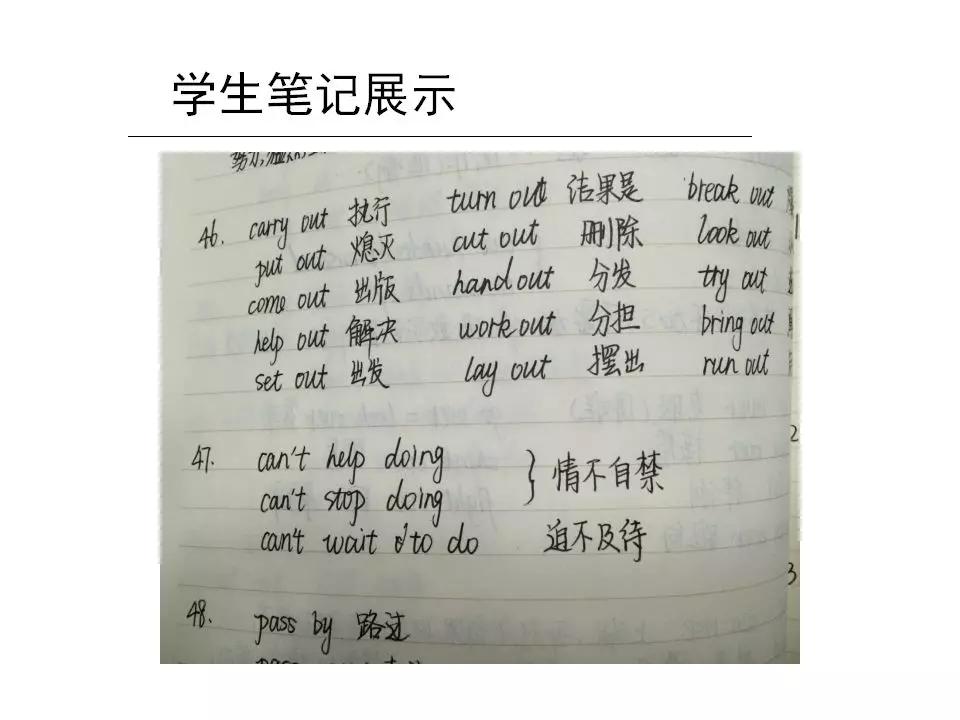 学生笔记展示
46. carry out 执行 turn out 结果是 break out
put out 熄灭 cut out 删除 look out
come out 出版 hand out 分发 try out
help out 解决 work out 分担 bring out
set out 出发 lay out 摆出 run out
47. can't help doing } 情不自禁
can't stop doing
can't wait to do 迫不及待
48. pass by 路过
2
3